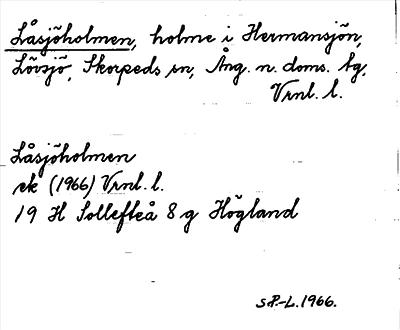 Låsjöholmen, holme i Hermansjön,
Lövsjö, Skorpeds sn, Ång. n. doms. tg,
Vrnl. l.
Låsjöholmen
ek (1966) Vrnl. l.
19 H Sollefteå 8 g Högland
S P.-L. 1966.